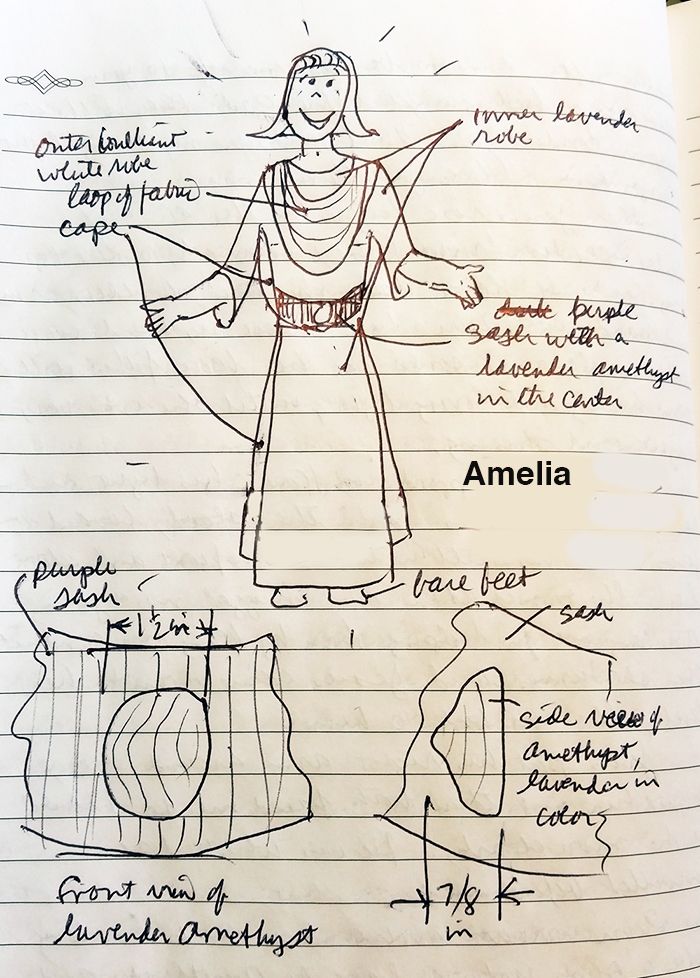 outer brilliant
white robe
loop of fabric
cape
inner lavender
robe
dark purple
sash with a
lavender amethyst
in the center
Amelia
bare feet
purple
sash
1 1/2 in
sash
side view of
amethyst,
lavender in
color
7/8
in
Front view of
lavender amethyst